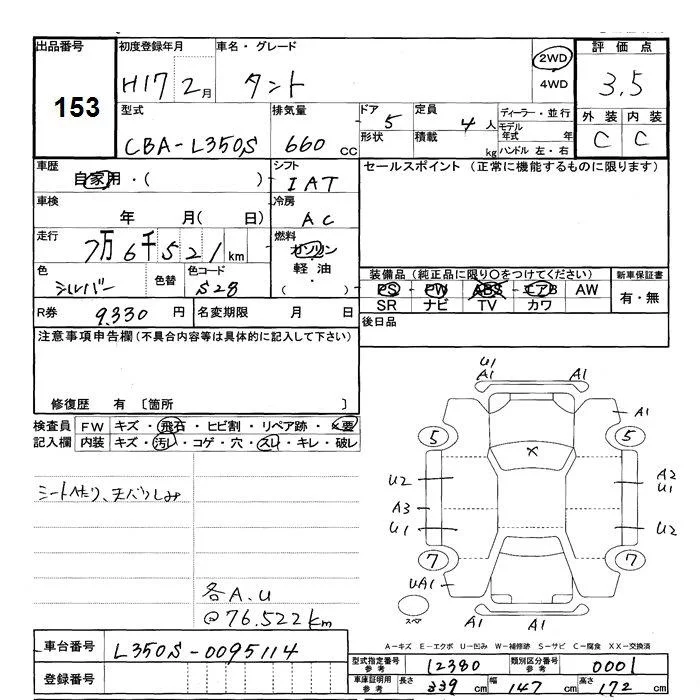 出品番号 初度登録年月 車名・グレード 2WD 評価点
153 H17 2月 タント 4WD 3.5
型式 排気量 ドア 定員 ディーラー・並行 外装 内装
CBA-L350S 660 CC 5 4人 モデル年式 年 C C
形状 積載 kg ハンドル 左・右
車歴 シフト セールスポイント (正常に機能するものに限ります)
自家用・( ) IAT
車検 冷房
年 月( 日) AC
走行 燃料
7万6千521km ガソリン
軽油・
( )
色 色替 色コード
シルバー S28
装備品 (純正品に限り○をつけてください) 新車保証書
PS PW ABS エアB AW 有・無
SR ナビ TV カワ
R券 9.330円 名変期限 月 日 後日品
注意事項申告欄(不具合内容等は具体的に記入して下さい)
修復歴 有 〔箇所 〕
検査員 FW キズ・飛石・ヒビ割・リペア跡・×要
記入欄 内装 キズ・汚レ・コゲ・穴・スレ・キレ・破レ
シートヘたり、天バリしみ
各A.U
@76.522km
U1
A1 A1
A1
5 5
×
U2 A2
U1
A3
U1 U2
7 7
UA1
スペア
A1 A1
A-キズ E-エクボ U-凹み W-補修跡 S-サビ C-腐食 XX-交換済
車台番号 L350S-0095114
登録番号
型式指定番号 参考 12380 類別区分番号 参考 0001
車庫証明用 参考 長さ 339cm 幅 147cm 高さ 172cm